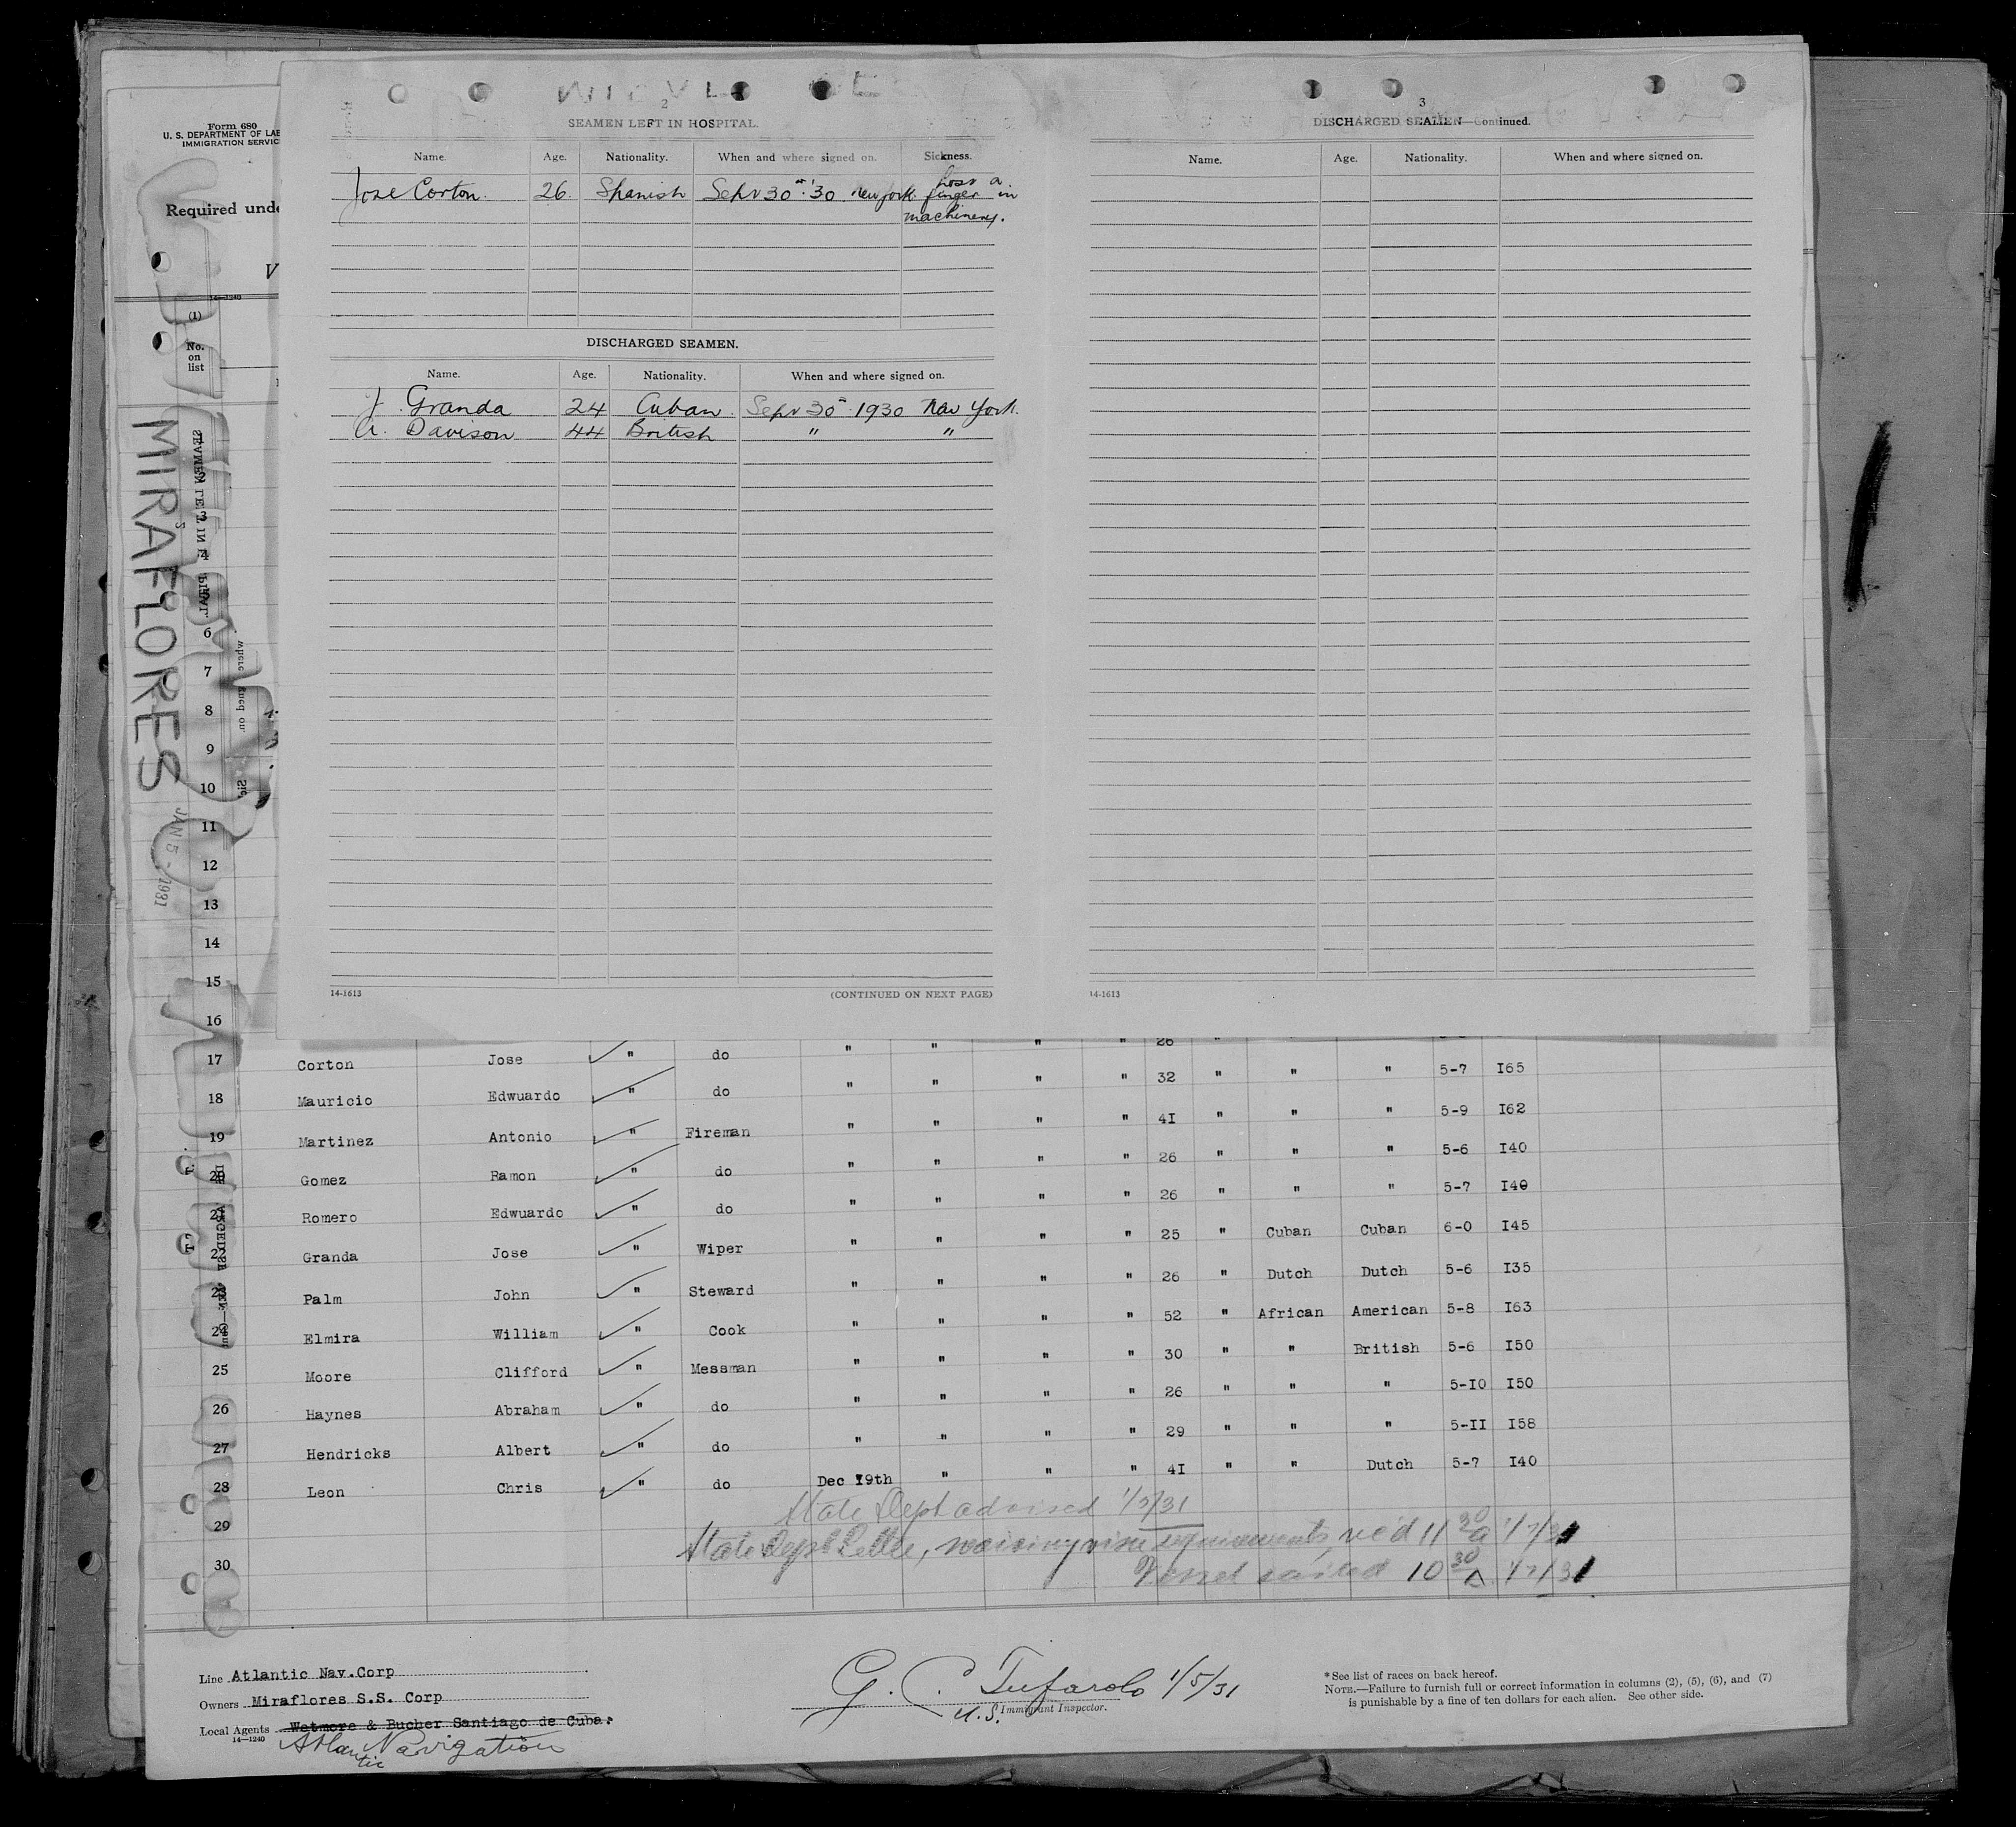 2
SEAMEN LEFT IN HOSPITAL.
Name. Age. Nationality. When and where signed on. Sickness.
Jose Corton. 26. Spanish Sept 30th '30 New York. Loss a finger in machinery.
DISCHARGED SEAMEN.
Name. Age. Nationality. When and where signed on.
J. Granda 24 Cuban. Sept 30th 1930 New York.
A. Davison 44 British " "
14-1613 (CONTINUED ON NEXT PAGE)
3
DISCHARGED SEAMEN—Continued.
Name. Age. Nationality. When and where signed on.
14-1613
Form 680
U. S. DEPARTMENT OF LAB
IMMIGRATION SERVIC
Required unde
V
14-1240
(1)
No.
on
list
MIRAFLORES
JAN 5 - 1931
SEAMEN LEFT IN
3
4
6
7
8
9
10
11
12
13
14
15
16
" " " " 26 "
17 Corton Jose " do " " " " 32 " " " 5-7 I65
18 Mauricio Edwuardo " do " " " " 4I " " " 5-9 I62
19 Martinez Antonio " Fireman " " " " 26 " " " 5-6 I40
20 Gomez Ramon " do " " " " 26 " " " 5-7 I40
21 Romero Edwuardo " do " " " " 25 " Cuban Cuban 6-0 I45
22 Granda Jose " Wiper " " " " 26 " Dutch Dutch 5-6 I35
23 Palm John " Steward " " " " 52 " African American 5-8 I63
24 Elmira William " Cook " " " " 30 " " British 5-6 I50
25 Moore Clifford " Messman " " " " 26 " " " 5-I0 I50
26 Haynes Abraham " do " " " " 29 " " " 5-II I58
27 Hendricks Albert " do Dec I9th " " " 4I " " Dutch 5-7 I40
28 Leon Chris " do
State Dept advised 1/5/31
29
State Dept Letter, waiving visa requirements, rec'd 11 30 a 1/7/31
30
Vessel sailed 10 30 A 1/7/31
Line Atlantic Nav.Corp
Owners Miraflores S.S. Corp
Local Agents Wetmore & Bucher Santiago de Cuba.
14-1240
Atlantic Navigation
G. C. Tufarolo 1/5/31
U.S. Immigrant Inspector.
*See list of races on back hereof.
NOTE.—Failure to furnish full or correct information in columns (2), (5), (6), and (7)
is punishable by a fine of ten dollars for each alien. See other side.